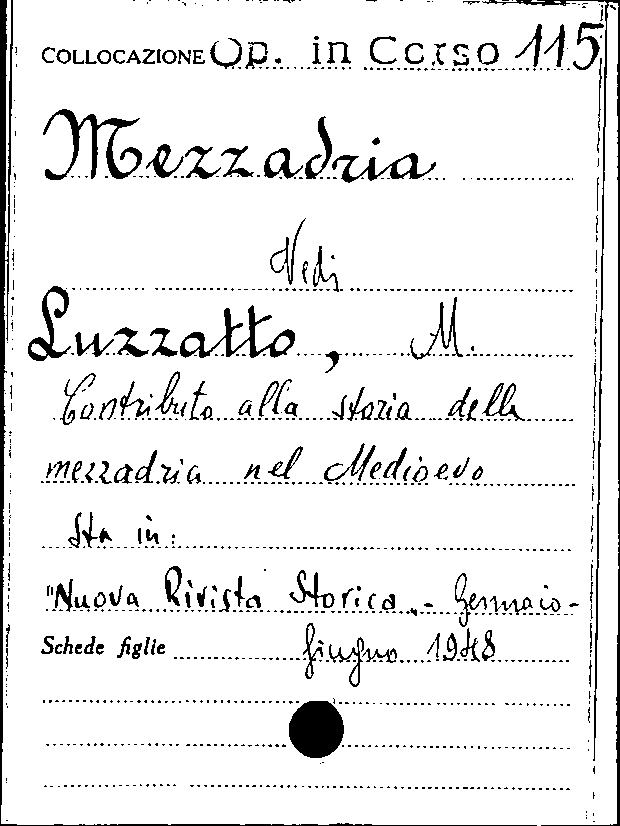 COLLOCAZIONE Op. in Corso 115
Mezzadria
Vedi
Luzzatto, M.
Contributo alla storia della
mezzadria nel Medioevo
Sta in:
"Nuova Rivista Storica„- Gennaio-
Schede figlie Giugno 1948